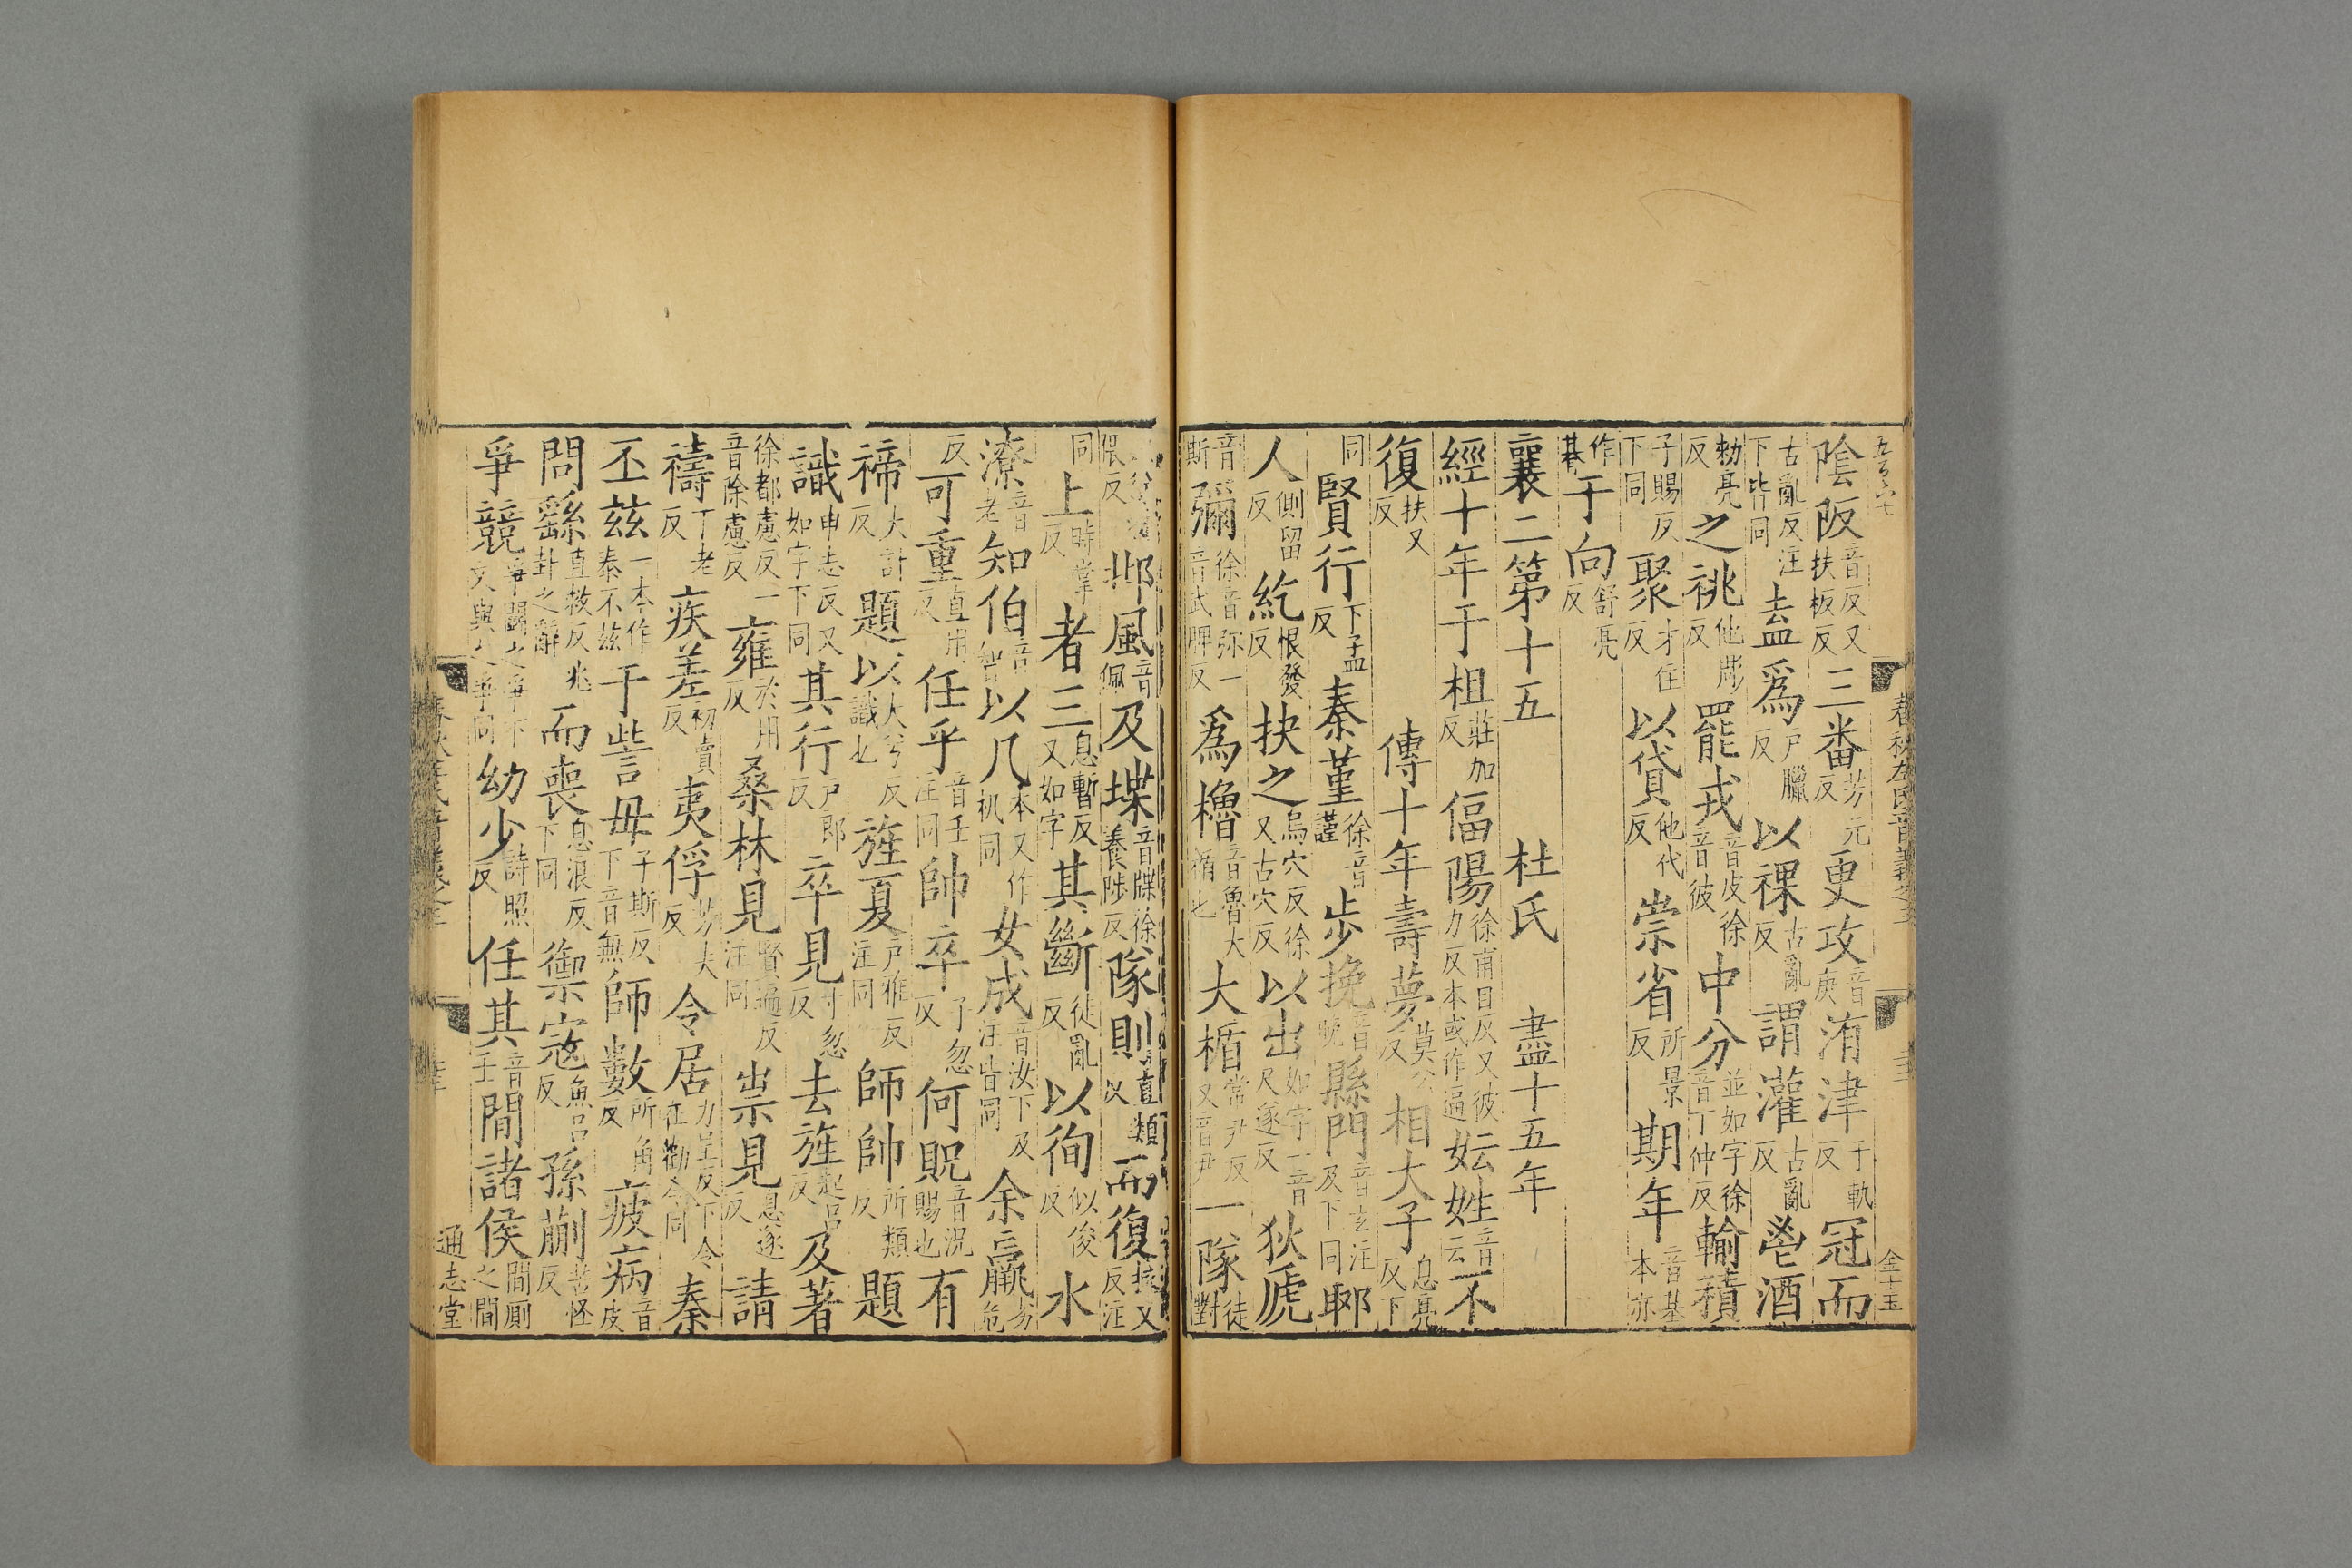 陰阪音反又扶板反三番芳元反更攻音庚洧津于軌反冠而
古亂反注下皆同盍爲戸臘反以祼古亂反謂灌古亂反鬯酒
勑亮反之祧他彫反罷戎音皮徐音彼中分並如字徐音丁仲反輸積
子賜反下同聚才住反以貸他代反崇省所景反期年音基本亦
作朞于向舒亮反
襄二第十五 杜氏 盡十五年
經十年于柤莊加反偪陽徐甫目反又彼力反本或作逼妘姓音云不
復扶又反 傳十年壽夢莫公反相大子息亮反下
同賢行下孟反秦堇徐音謹步挽音晚縣門音玄注及下同郰
人側留反紇恨發反抉之烏穴反徐又古穴反以出如字一音尺遂反狄虒
音斯彌徐音弥一音武脾反爲櫓音魯大楯也大楯常尹反又音尹一隊徒對
邶風音佩及堞音牒徐養涉反隊則直類而復扶又反注
同上時掌反者三息暫反又如字其斷徒亂反以徇似俊反水
潦音老知伯音智以几本又作机同女成音汝下及注皆同余羸劣危
反可重直用反任乎音壬注同帥卒子忽反何貺音況賜也有
禘大計反題以大兮反識也旌夏戸雅反注同師帥所類反題
識申志反又如字下同其行戸郎反卒見寸忽反去旌起呂反及著
徐都慮反一音除慮反雍於用反桑林見賢遍反注同祟見息遂反請
禱丁老反疾差初賣反夷俘芳夫反令居力呈反下令在勸令同秦
丕茲一本作秦不茲于訾毋子斯反下音無師數所角反疲病音皮
問繇直救反兆卦之辭而喪息浪反下同禦寇魚呂反孫蒯苦怪反
爭競爭鬭之爭下文與之爭同幼少詩照反任其音壬間諸侯間厠之間
通志堂